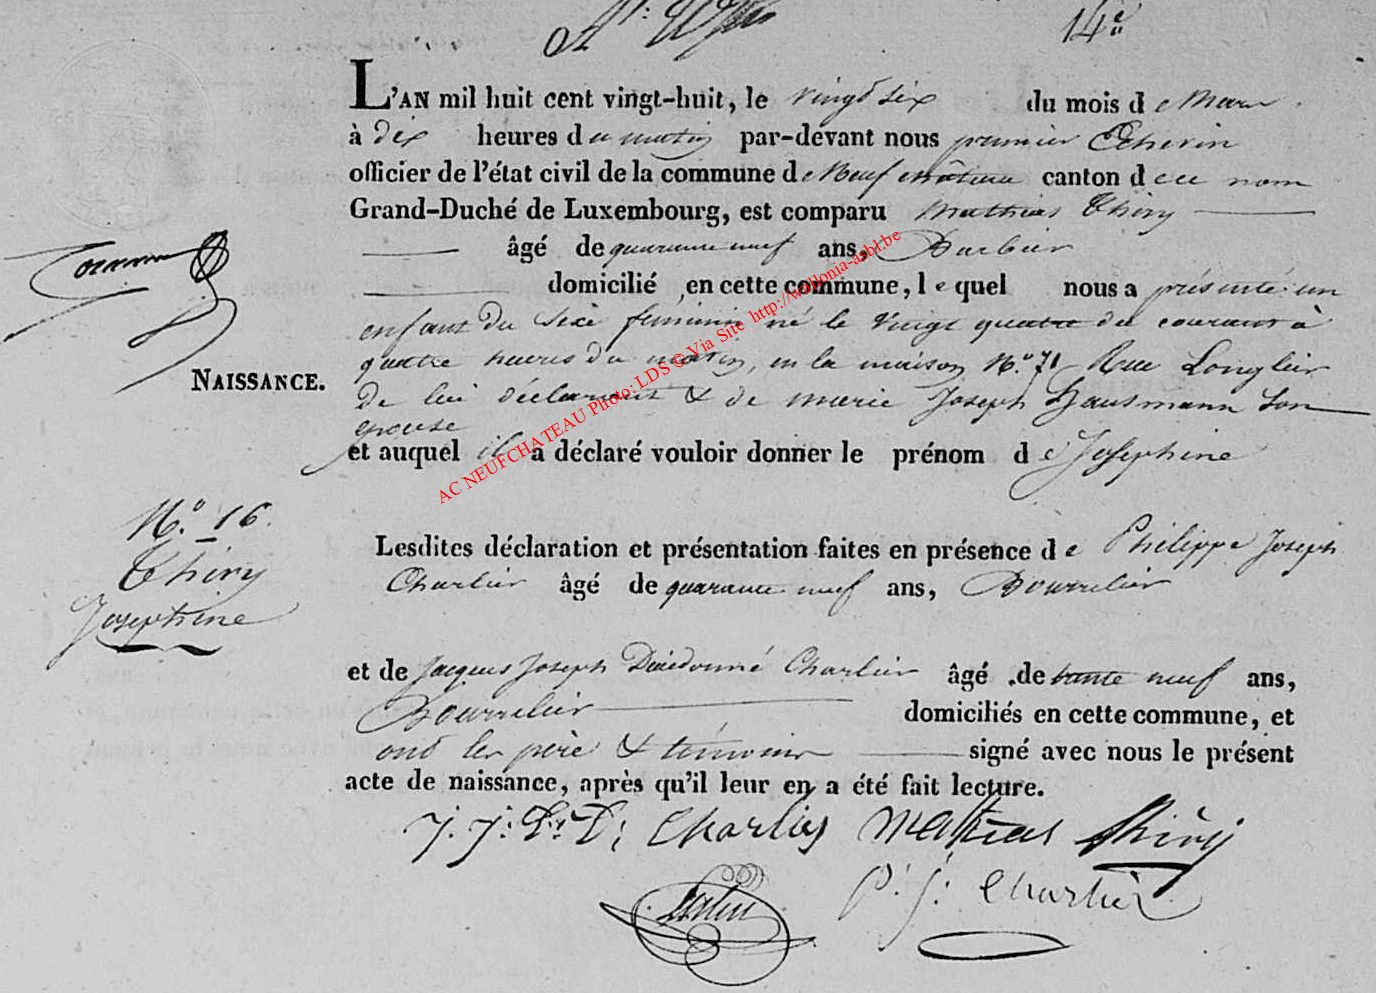 14e
L'AN mil huit cent vingt-huit, le vingt six du mois de Mars
à dix heures du matin par-devant nous premier Echevin
officier de l'état civil de la commune de Neufchâteau canton de ce nom
Grand-Duché de Luxembourg, est comparu Mathias Thiry
âgé de quarante neuf ans, Barbier
domicilié en cette commune, lequel nous a présenté un
enfant du sexe feminin né le vingt quatre du courant à
quatre heures du matin, en la maison N.o 71 Rue Longlier
NAISSANCE.
de lui déclarant & de marie Joseph Hausmann son
epouse
et auquel il a déclaré vouloir donner le prénom de Josephine
N.o 16.
Thiry
Josephine
Lesdites déclaration et présentation faites en présence de Philippe Joseph
Charlier âgé de quarante neuf ans, Bourrelier
et de Jacques Joseph Dieudonné Charlier âgé de trente neuf ans,
Bourrelier domiciliés en cette commune, et
ont les père & témoins signé avec nous le présent
acte de naissance, après qu'il leur en a été fait lecture.
J. J. D. Charlier Mathias Thiry
P. J. Charlier
AC NEUFCHATEAU Photo: LDS © Via Site http://wallonia-asbl.be